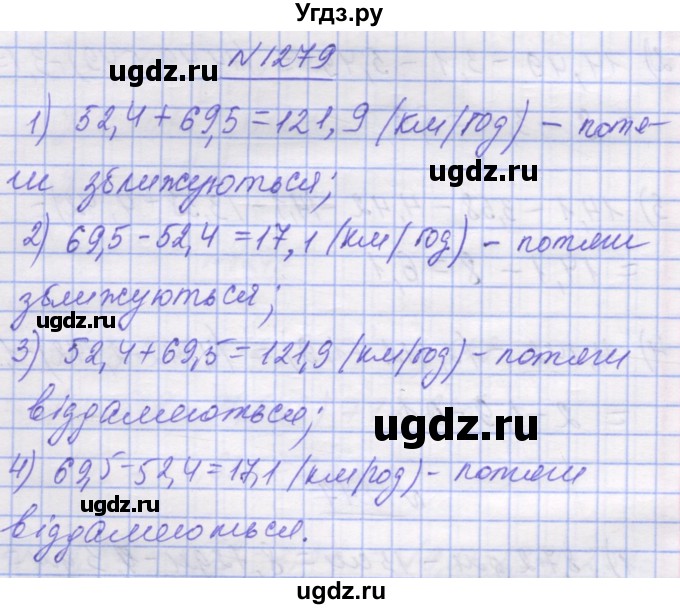 Угдз.ру
N1279
ugdz.ru
1) 52,4 + 69,5 = 121,9 (км/год) – потя-
ги зближуються;
ugdz.ru
2) 69,5 – 52,4 = 17,1 (км/год) – потяги
зближуються;
ugdz.ru
3) 52,4 + 69,5 = 121,9 (км/год) – потяги
віддаляються;
ugdz.ru
4) 69,5 – 52,4 = 17,1 (км/год) – потяги
віддаляються.
ugdz.ru
ugdz.ru